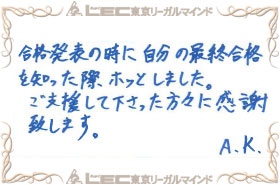 LEC東京リーガルマインド LEC東京リーガルマインド
合格発表の時に自分の最終合格
を知った際、ホッとしました。
ご支援して下さった方々に感謝
致します。
A.K.